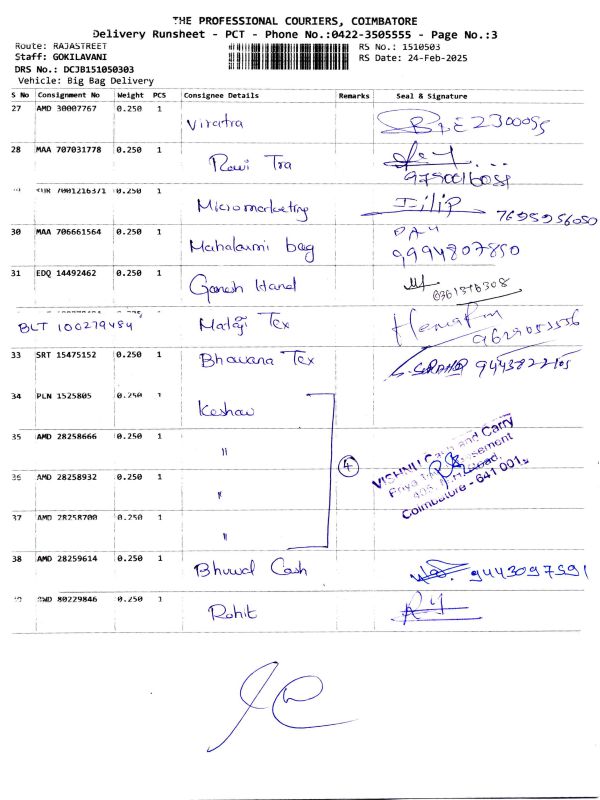 THE PROFESSIONAL COURIERS, COIMBATORE
Delivery Runsheet - PCT - Phone No.:0422-3505555 - Page No.:3
Route: RAJASTREET RS No.: 1510503
Staff: GOKILAVANI RS Date: 24-Feb-2025
DRS No.: DCJB151050303
Vehicle: Big Bag Delivery
S No Consignment No Weight PCS Consignee Details Remarks Seal & Signature
27 AMD 30007767 0.250 1
Viratra 2300055
28 MAA 707031778 0.250 1
Ravi Tra
7001216371 0.250 1
Micromarketing Dilip 7695956050
30 MAA 706661564 0.250 1
Mahalaxmi bag 9994807850
31 EDQ 14492462 0.250 1
Ganesh Hand
BLT 100279484 Mataji Tex
33 SRT 15475152 0.250 1
Bhavana Tex
34 PLN 1525805 0.250 1
Keshav
35 AMD 28258666 0.250 1
"
36 AMD 28258932 0.250 1
" 4
VISHNU Cash and Carry
Coimbatore - 641 001.
37 AMD 28258700 0.250 1
"
38 AMD 28259614 0.250 1
Bhuwal Cash 9443097591
80229846 0.250 1
Rohit